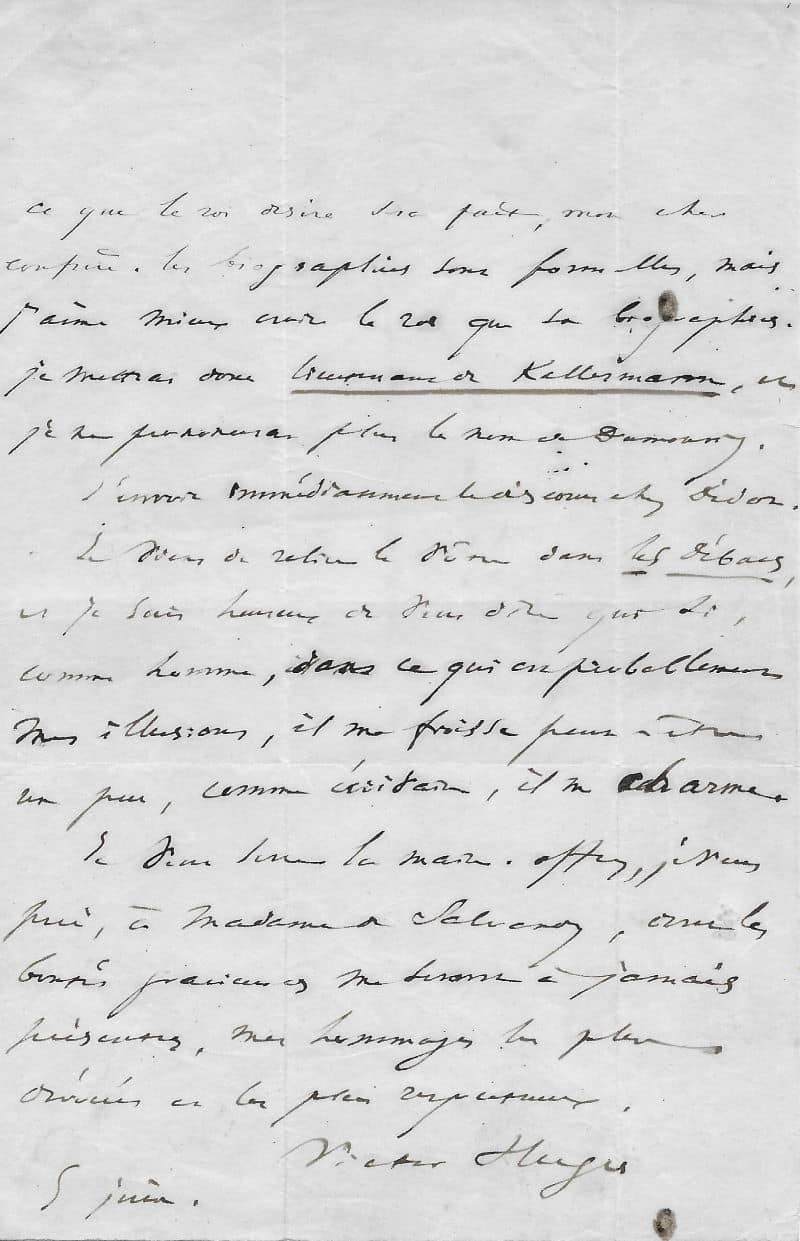 ce que le roi désire sera fait, mon cher
confrère. les biographies sont formelles, mais
j'aime mieux croire le roi que les biographies.
je mettrai donc lieutenant de Kellermann, et
je ne prononcerai plus le nom de Dumouriez.
J'envoie immédiatement le discours chez Didot.
Je viens de relire le vôtre dans les Débats,
et je suis heureux de vous dire que si,
comme homme, dans ce que en probablement
mes illusions, il me froisse peut-être
un peu, comme écrivain, il me charme.
Je vous serre la main. offrez, je vous
prie, à Madame de Salvandy, dont les
bontés gracieuses me seront à jamais
présentes, mes hommages les plus
dévoués et les plus respectueux.
Victor Hugo
5 juin.